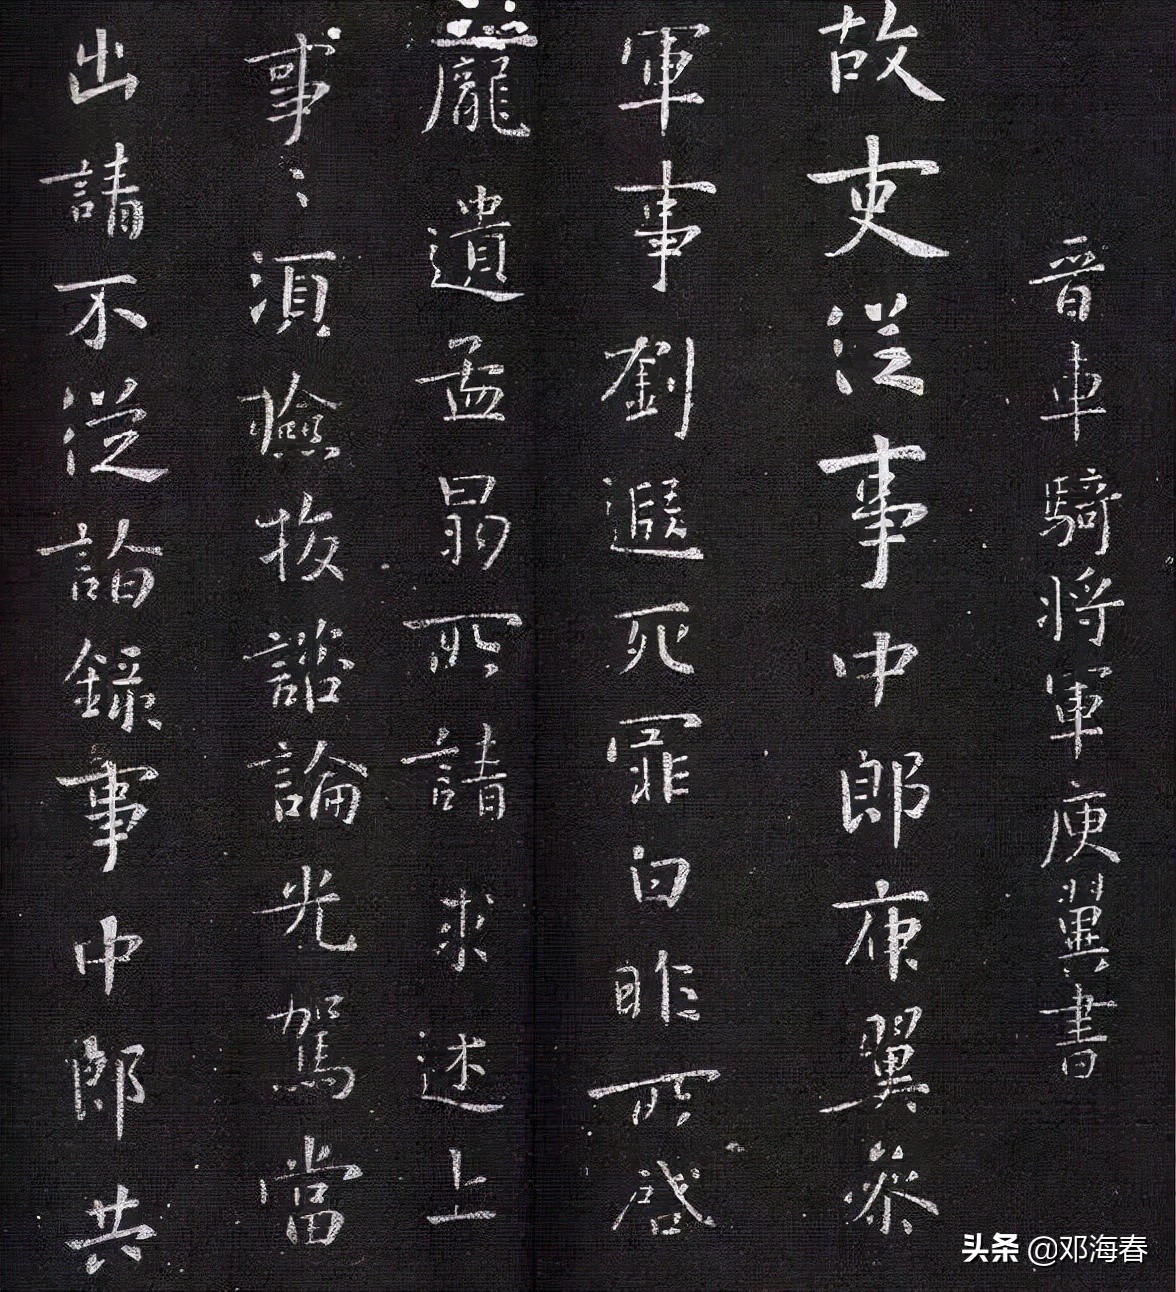 晋車騎将軍庾翼書
故吏從事中郎庾翼叅
軍事劉遐死罪白昨所啓
龐遺孟昴所請求述上
事〻須檢校諮論光駕當
出請不從詣錄事中郎共
头条 @邓海春